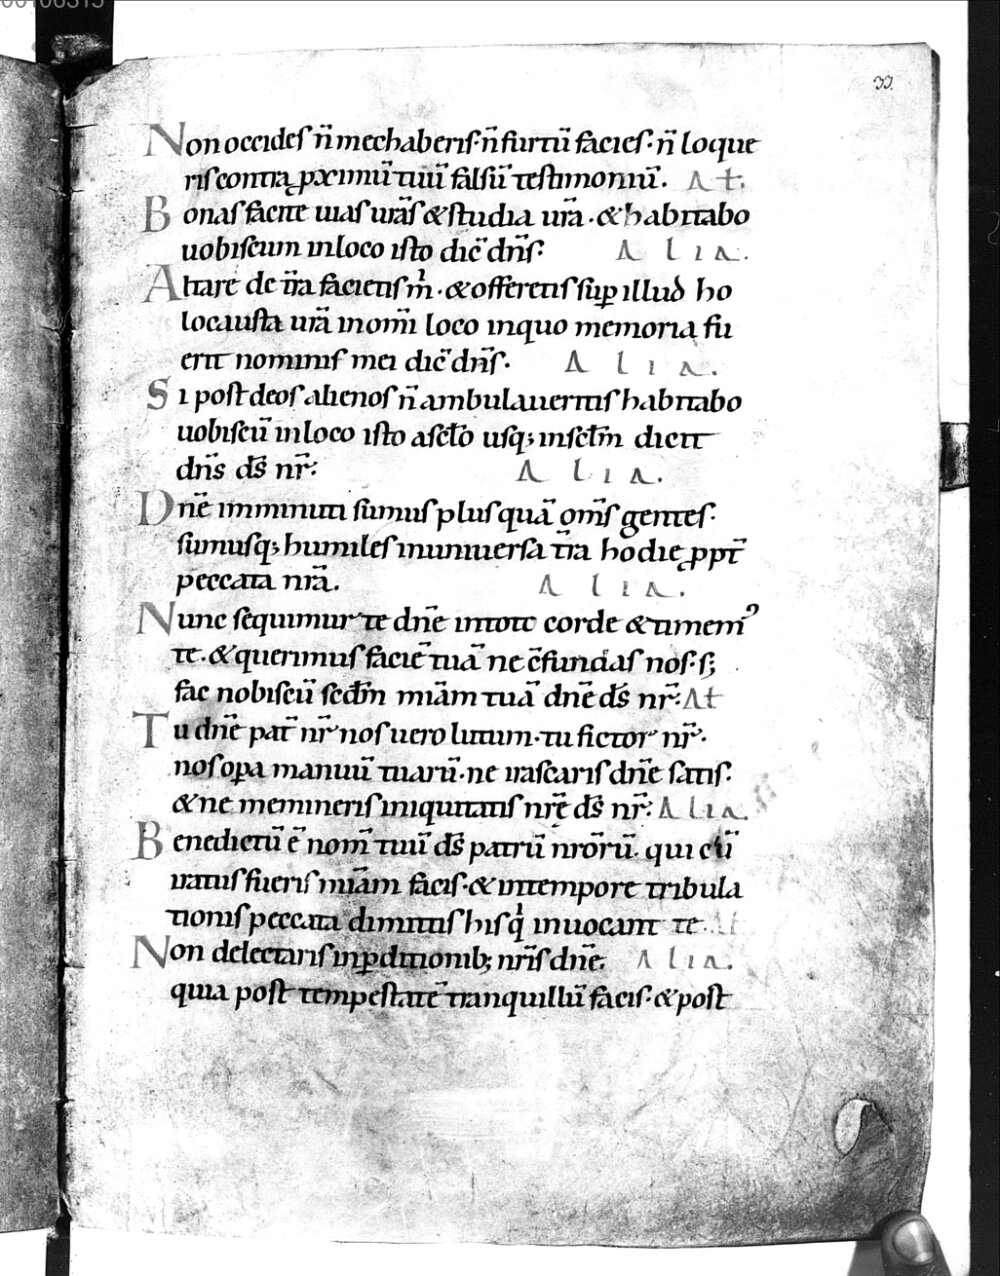 00106315
33.
Non occides n̄ mechaberis· n̄ furtū facies· n̄ loque
ris contra ꝓximū tuū falsū testimoniū. At.
Bonas facite uias ur̄as & studia ur̄a · & habitabo
uobiscum in loco isto dic̄ dn̄s· A l i a.
Altare de tr̄a facietis m̊· & offeretis suꝑ illud ho
locausta ur̄a in om̄i loco in quo memoria fu
erit nominis mei dic̄ dn̄s· A l i a.
Si post deos alienos n̄ ambulaueritis habitabo
uobiscū in loco isto a sclo usq; in sclm dicit
dn̄s ds̄ nr̄: A l i a.
Dn̄e imminuti sumus plus quā om̄s gentes·
sumusq; humiles in uniuersa tr̄a hodie ꝓpt̄
peccata nr̄a. A l i a.
Nunc sequimur te dn̄e in toto corde & timemꝰ
te· & querimus faciē tuā ne c̄fundas nos· s;
fac nobiscū scdm mīam tuā dn̄e ds̄ nr̄: At
Tu dn̄e pat̄ nr̄ nos uero lutum· tu fictor nr̄·
nos oꝑa manuū tuarū· ne irascaris dn̄e satis·
& ne memineris iniquitatis nr̄ę ds̄ nr̄: A l i a.
Benedictū ē nom̄ tuū ds̄ patrū nr̄orū· qui cū
iratus fueris mīam facis· & in tempore tribula
tionis peccata dimittis his q̊ inuocant te· At
Non delectaris in ꝑditionib; nr̄is dn̄e. A l i a.
quia post tempestatē tranquillū facis· & post